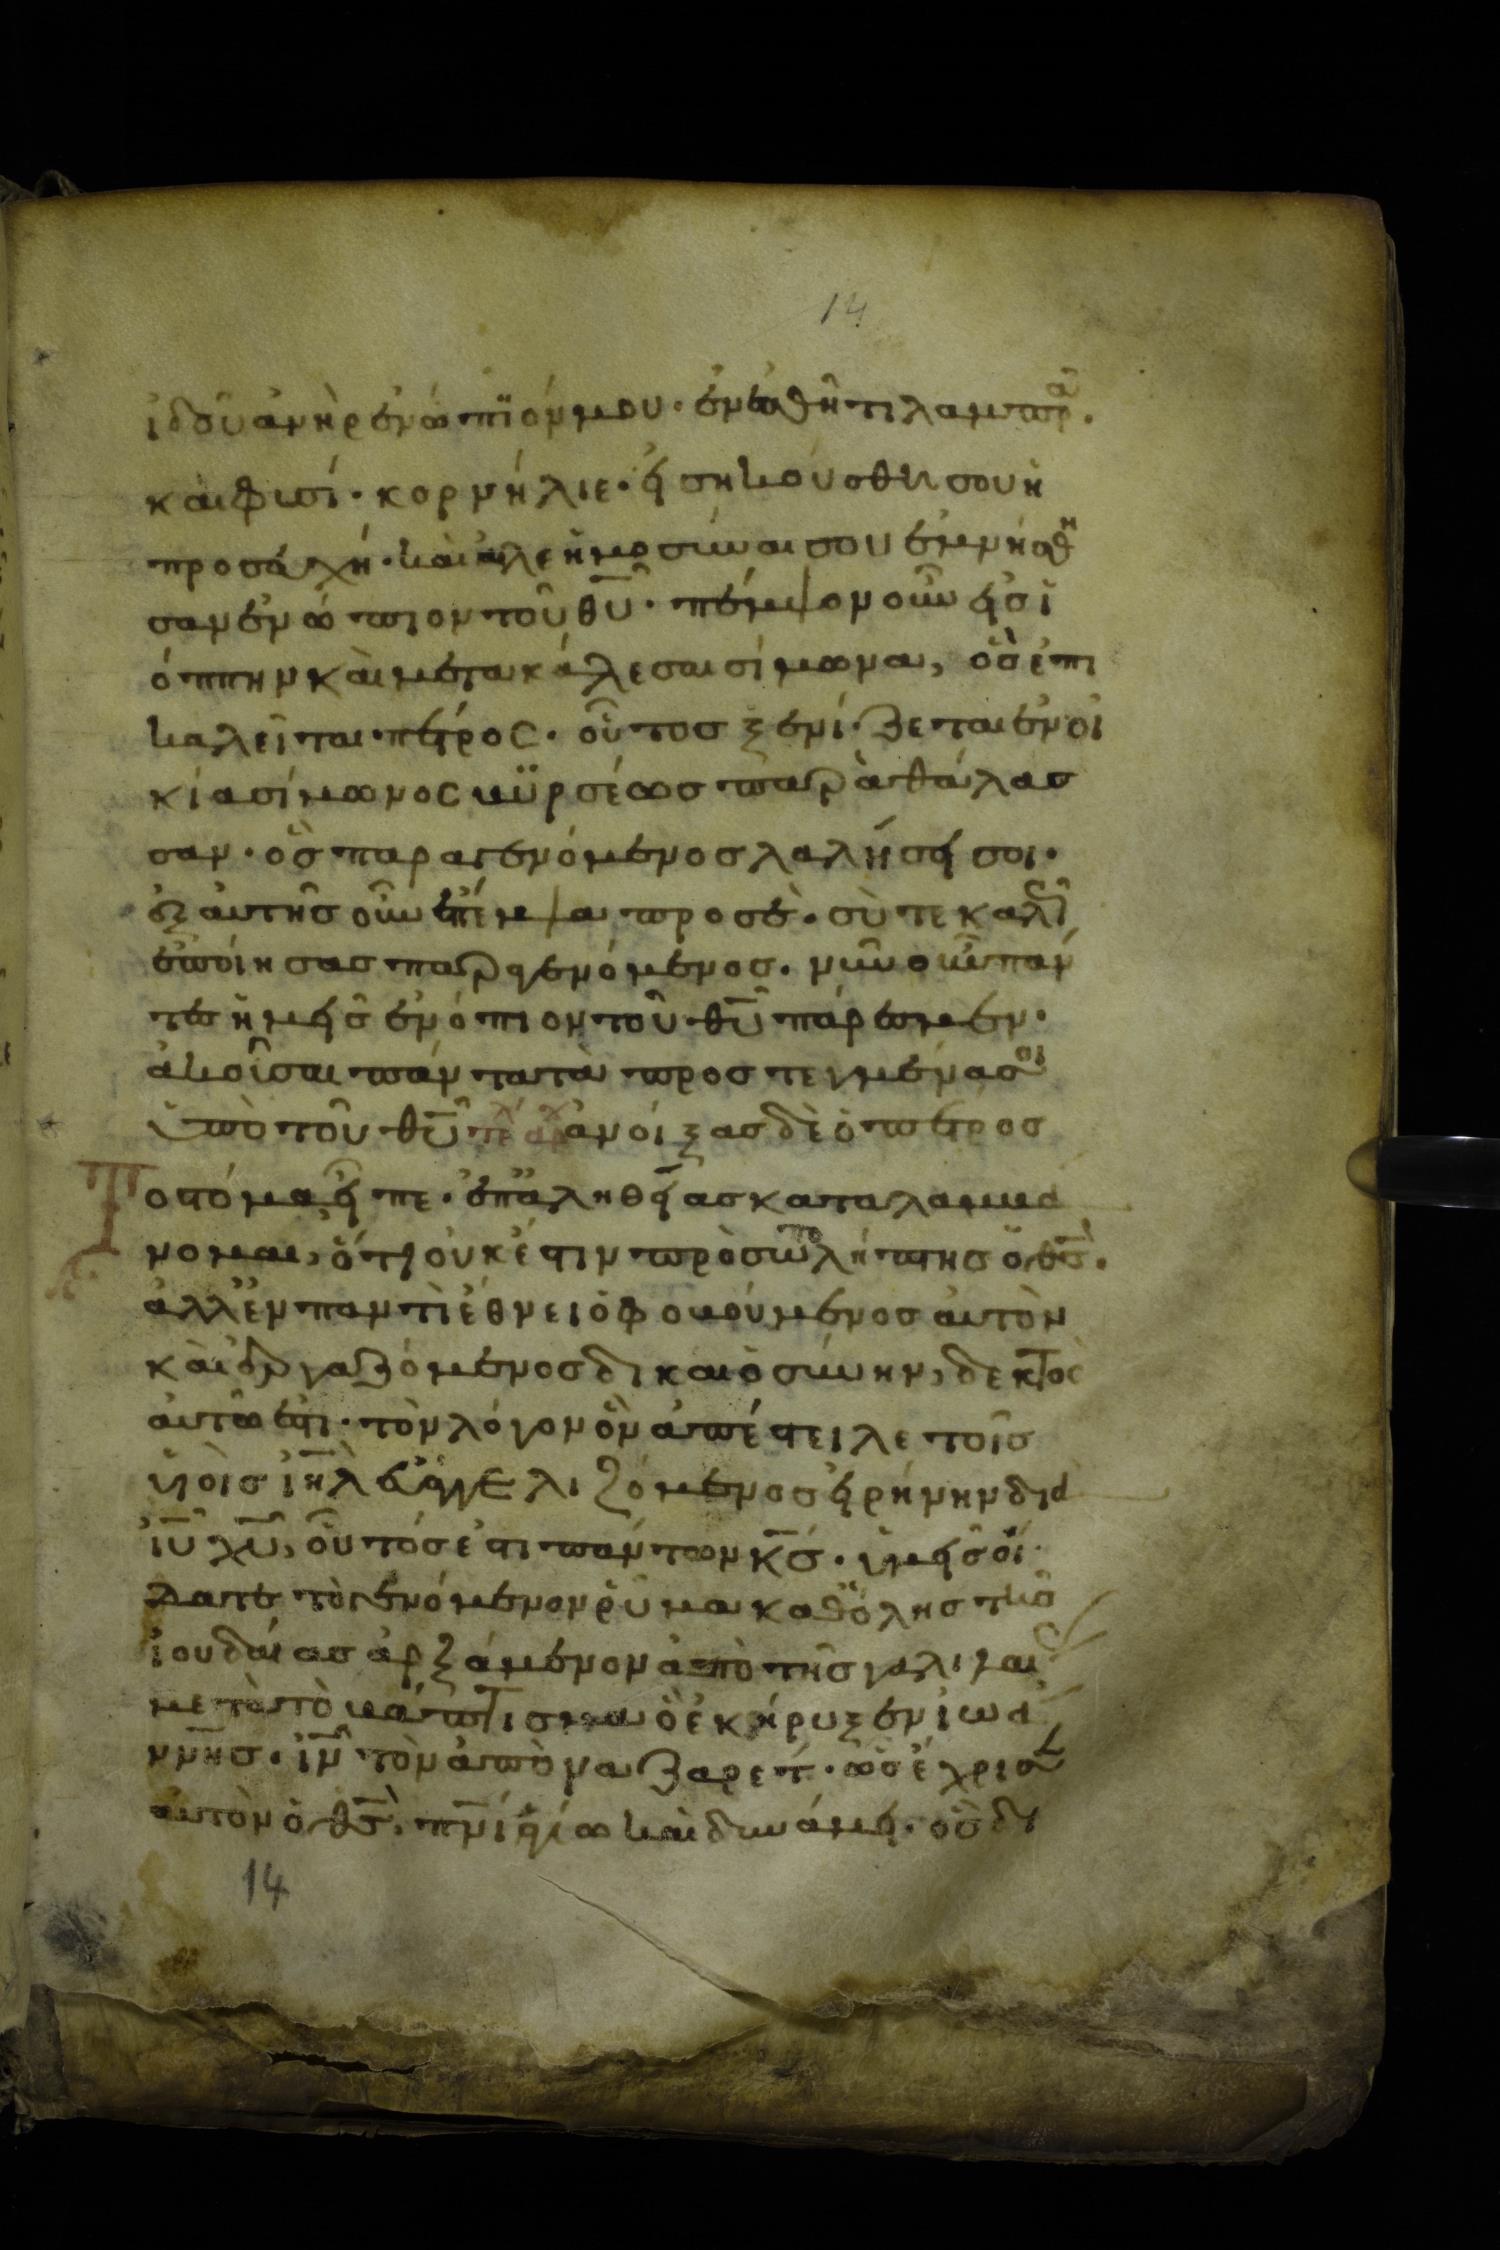 14
ἰδοῦ ἀνὴρ ἐνώπϊόν μου · ἐν ἐσθῆτι λαμπρᾶ ·
καὶ φισί · κορνήλιε · εἰσηκούσθη σου ἡ
προσευχή · καὶ αἱ ἐλεημοσύναι σου ἐμνήσθη
σαν ἐνώπιον τοῦ θυ̅ · πέμψον οὖν εἰσ ἰ
όππην καὶ μετακάλεσαι σίμωνα, ὃσ ἐπι
καλεῖται πέτρος · οὗτοσ ξενίζεται ἐν οἰ
κία σίμωνος βϋρσέωσ παρὰ θάλασ
σαν · ὃσ παραγενόμενοσ λαλήσει σοι ·
ἐξ αὐτῆσ οὖν ἔπεμψα προσ σὲ · σὺ τε καλῶ
ἐποίησασ παραγενόμενοσ · νῦν οὖν πάν
τεσ ἡμεῖσ ἐνόπιον τοῦ θυ̅ πάρεσμεν ·
ἀκοῦσαι πάντα τὰ προστεγμένα σοι
ὑπὸ τοῦ θυ̅ ἀνοίξασ δὲ ὁ πέτροσ
Το στόμα εἶπε · ἐπ' ἀληθείασ καταλαμβά
νομαι, ὅτι οὐκ ἔστιν πρὸσωπολήπτησ ὁ θσ̅ ·
ἀλλ' ἐν παντὶ ἔθνει ὁ φοβούμενοσ αὐτὸν
καὶ ἐργαζόμενοσ δικαιὸσύνην, δεκτὸς
αὐτῶ ἐστι · τὸν λόγον ὃν ἀπέστειλε τοῖσ
ὑϊοῖσ ιη̅λ εὐαγγελιζόμενοσ εἰρήνην διὰ
ιυ̅ χυ̅, οὗτόσ ἐστι πάντων κσ̅ · ὑμεῖσ οἴ
δατε τὸ γενόμενον ῥῦμα καθ' ὅλησ τῆσ
ἰουδαίασ ἀρξάμενον ἀπὸ τῆσ γαλιλαί
μετὰ τὸ βάπτισμα ὃ ἐκήρυξεν ἰωά
ννησ · ιν̅ τὸν ἀπὸ ναζαρετ · ὡσ ἔχρισεν
αὐτὸν ὁ θσ̅, πνι̅ ἁγίω καὶ δυνάμει · ὃσ δι
14